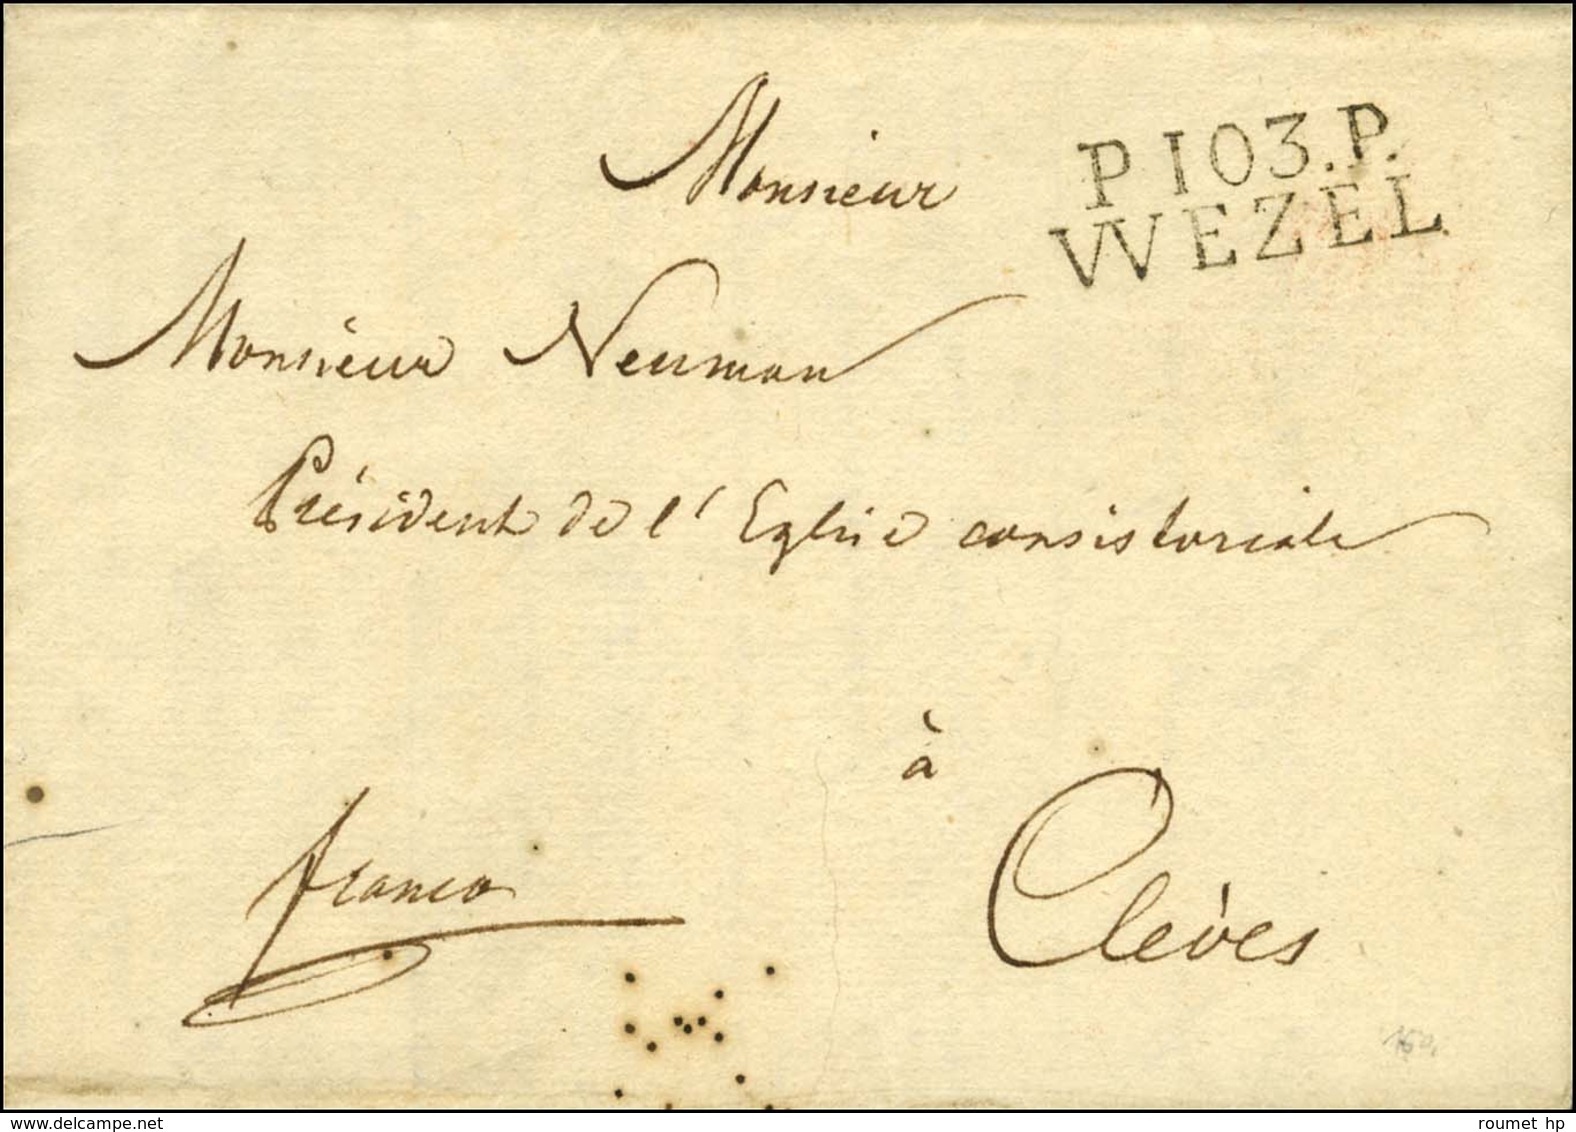 Monsieur
P 103.P.
WEZEL
Monsieur Neuman
Président de l'Eglise consistoriale
à
franco
Clèves
160.
www.delcampe.net
roumet hp